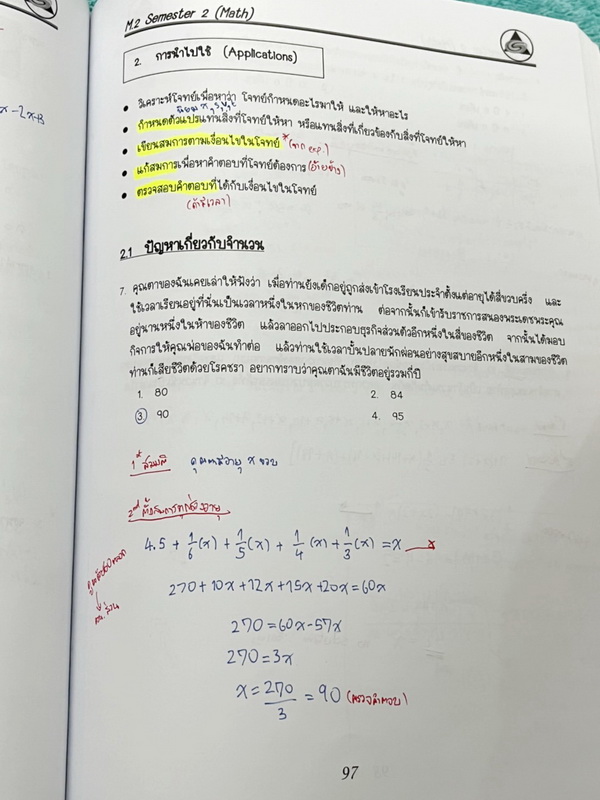 M.2 Semester 2 (Math)
2. การนำไปใช้ (Applications)
x - 2x+3
• วิเคราะห์โจทย์เพื่อหาว่า โจทย์กำหนดอะไรมาให้ และให้หาอะไร
นิยม x, y, z
• กำหนดตัวแปรแทนสิ่งที่โจทย์ให้หา หรือแทนสิ่งที่เกี่ยวข้องกับสิ่งที่โจทย์ให้หา
• เขียนสมการตามเงื่อนไขในโจทย์ * (จาก exp.)
• แก้สมการเพื่อหาคำตอบที่โจทย์ต้องการ (ย้ายข้าง)
• ตรวจสอบคำตอบที่ได้กับเงื่อนไขในโจทย์
(ถ้ามีเวลา)
2.1 ปัญหาเกี่ยวกับจำนวน
7. คุณตาของฉันเคยเล่าให้ฟังว่า เมื่อท่านยังเด็กอยู่ถูกส่งเข้าโรงเรียนประจำตั้งแต่อายุได้สี่ขวบครึ่ง และ
ใช้เวลาเรียนอยู่ที่นั่นเป็นเวลาหนึ่งในหกของชีวิตท่าน ต่อจากนั้นก็เข้ารับราชการสนองพระเดชพระคุณ
อยู่นานหนึ่งในห้าของชีวิต แล้วลาออกไปประกอบธุรกิจส่วนตัวอีกหนึ่งในสี่ของชีวิต จากนั้นได้มอบ
กิจการให้คุณพ่อของฉันทำต่อ แล้วท่านใช้เวลาบั้นปลายพักผ่อนอย่างสุขสบายอีกหนึ่งในสามของชีวิต
ท่านก็เสียชีวิตด้วยโรคชรา อยากทราบว่าคุณตาฉันมีชีวิตอยู่รวมกี่ปี
1. 80 2. 84
3. 90 4. 95
1st สมมติ คุณตามีอายุ x ขวบ
2nd ตั้งสมการทุกช่วงอายุ
4.5 + 1/6(x) + 1/5(x) + 1/4(x) + 1/3(x) = x
270+10x+12x+15x+20x=60x
270=60x-57x
270=3x
x=270/3 = 90 (ตรวจคำตอบ)
97